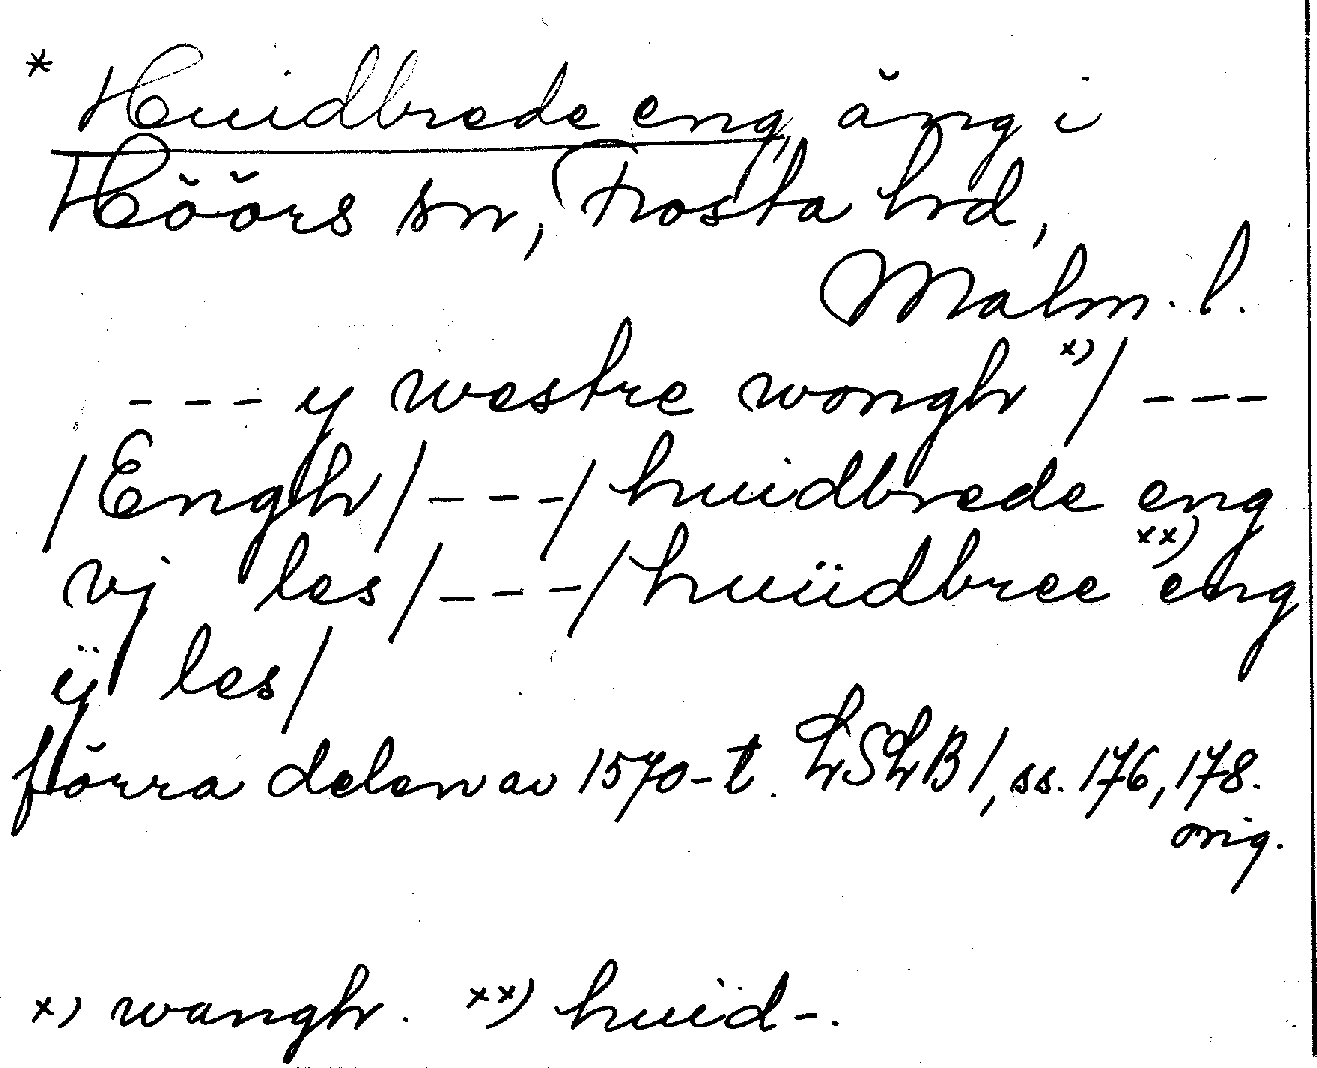 * Huidbrede eng, äng i
Höörs sn, Frosta hrd,
Malm. l.
--- y westre wongh x)/ ---
/Engh/---/huidbrede eng
vj les/---/huüdbree xx) eng
ij les/
förra delen av 1570-t. LSLB 1, ss. 176, 178.
orig.
x) wangh. xx) huid-.